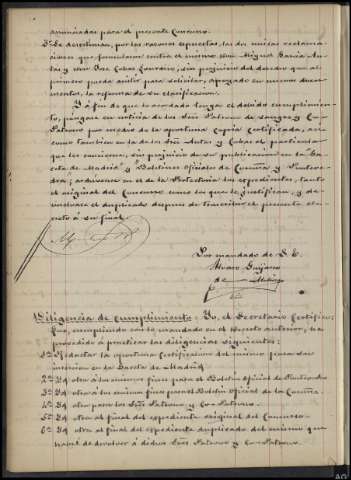 anunciadas para el presente Concurso.
3º Se desestiman, por las razones expuestas, las dos únicas reclama-
ciones que formularon contra el mismo Don Miguel García An-
tas y Don José Cobas Lourdero, sin perjuicio del derecho que al
primero pueda asistir para solicitar, apoyado en nuevos docu-
mentos, la reforma de su clasificación.
Y á fin de que lo acordado tenga el debido cumplimien-
to, póngase en noticia de los Sres Patrono de sangre y Co-
Patrono por medio de la oportuna copia certificada, así
como también en la de los Sres Antas y Cobas el particular
que les concierne, sin perjuicio de su publicación en la Ga-
ceta de Madrid y Boletines oficiales de Coruña y Ponteve-
dra; archívense en el de la Protectoría los expedientes, tanto
el original del Concurso como los que le justifican, y de-
vuélvase el duplicado después de transcrito el presente de-
creto á su final.
Por mandado de S. E.
Alvaro
de
Diligencia de cumplimiento. Yo, el Secretario Certifico:
Que, cumpliendo con lo mandado en el Decreto anterior, he
procedido á practicar las diligencias siguientes:
1º Redactar la oportuna Certificación del mismo para su
inserción en la Gaceta de Madrid.
2º Id otra á los mismos fines para el Boletín oficial de Pontevedra
3º Id otra á los mismos fines para el Boletín oficial de la Coruña
4º Id otra para los Sres Patrono y Co-Patrono.
5º Id otra al final del expediente original del Concurso.
6º Id otra al final del expediente duplicado del mismo que
habré de devolver á dichos Sres Patrono y Co-Patrono.